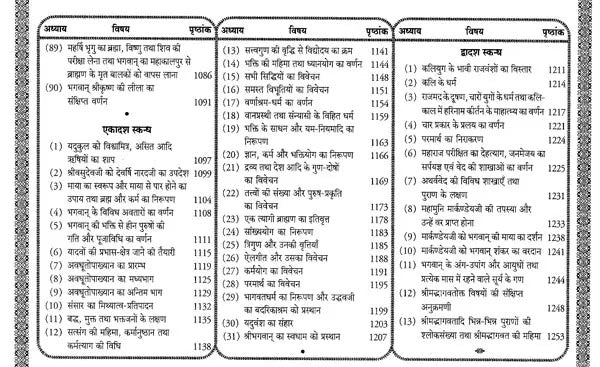 अध्याय विषय पृष्ठांक
(89) महर्षि भृगु का ब्रह्मा, विष्णु तथा शिव की
परीक्षा लेना तथा भगवान् का महाकालपुर से
ब्राह्मण के मृत बालकों को वापस लाना 1086
(90) भगवान् श्रीकृष्ण की लीला का
संक्षिप्त वर्णन 1091
एकादश स्कन्ध
(1) यदुकुल को विश्वामित्र, असित आदि
ऋषियों का शाप 1097
(2) श्रीवसुदेवजी को देवर्षि नारदजी का उपदेश 1099
(3) माया का स्वरूप और माया से पार होने का
उपाय तथा ब्रह्म और कर्म का निरूपण 1104
(4) भगवान् के विविध अवतारों का वर्णन 1108
(5) भगवान् की भक्ति से हीन पुरुषों की
गति और पूजाविधि का वर्णन 1111
(6) यादवों की प्रभास-क्षेत्र जाने की तैयारी 1115
(7) अवधूतोपाख्यान का प्रारम्भ 1119
(8) अवधूतोपाख्यान का मध्यभाग 1125
(9) अवधूतोपाख्यान का अन्तिम भाग 1129
(10) संसार का मिथ्यात्व-प्रतिपादन 1132
(11) बद्ध, मुक्त तथा भक्तजनों के लक्षण 1135
(12) सत्संग की महिमा, कर्मानुष्ठान तथा
कर्मत्याग की विधि 1138
अध्याय विषय पृष्ठांक
(13) सत्त्वगुण की वृद्धि से विद्योदय का क्रम 1141
(14) भक्ति की महिमा तथा ध्यानयोग का वर्णन 1144
(15) सभी सिद्धियों का विवेचन 1148
(16) समस्त विभूतियों का विवेचन 1151
(17) वर्णाश्रम-धर्म का वर्णन 1154
(18) वानप्रस्थी तथा संन्यासी के विहित धर्म 1159
(19) भक्ति के साधन और यम-नियमादि का
निरूपण 1163
(20) ज्ञान, कर्म और भक्तियोग का निरूपण 1166
(21) द्रव्य तथा देश आदि के गुण-दोषों
का विवेचन 1169
(22) तत्वों की संख्या और पुरुष-प्रकृति
का विवेचन 1173
(23) एक त्यागी ब्राह्मण का इतिवृत्त 1178
(24) सांख्ययोग का निरूपण 1183
(25) त्रिगुण और उनकी वृत्तियाँ 1185
(26) ऐलगीत और उसका विवेचन 1188
(27) कर्मयोग का विवेचन 1191
(28) परमार्थ का विवेचन 1195
(29) भागवतधर्म का निरूपण और उद्धवजी
का बदरिकाश्रम को प्रस्थान 1199
(30) यदुवंश का संहार 1203
(31) श्रीभगवान् का स्वधाम को प्रस्थान 1207
अध्याय विषय पृष्ठांक
द्वादश स्कन्ध
(1) कलियुग के भावी राजवंशों का विस्तार 1211
(2) कलि के धर्म 1214
(3) राजमद के दूषण, चारों युगों के धर्म तथा कलि-
काल में हरिनाम कीर्तन के माहात्म्य का वर्णन 1217
(4) चार प्रकार के प्रलय का वर्णन 1221
(5) परमार्थ का निराकरण 1224
(6) महाराज परीक्षित का देहत्याग, जनमेजय का
सर्पयज्ञ एवं वेद की शाखाओं का वर्णन 1225
(7) अथर्ववेद की विविध शाखाएँ तथा
पुराण के लक्षण 1231
(8) महामुनि मार्कण्डेयजी की तपस्या और
उन्हें वर प्राप्त होना 1233
(9) मार्कण्डेयजी को भगवान् की माया का दर्शन 1238
(10) मार्कण्डेयजी को भगवान् शंकर का वरदान 1241
(11) भगवान् के अंग-उपांग और आयुधों तथा
प्रत्येक मास में रहने वाले सूर्य के गण 1244
(12) श्रीमद्भागवतोक्त विषयों की संक्षिप्त
अनुक्रमणी 1248
(13) श्रीमद्भागवतादि भिन्न-भिन्न पुराणों की
श्लोकसंख्या तथा श्रीमद्भागवत की महिमा 1253